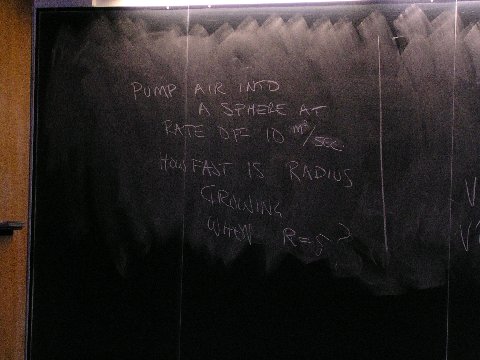 PUMP AIR INTO
A SPHERE AT
RATE OF 10 m³/SEC
HOW FAST IS RADIUS
GROWING
WHEN R=5?
V
V